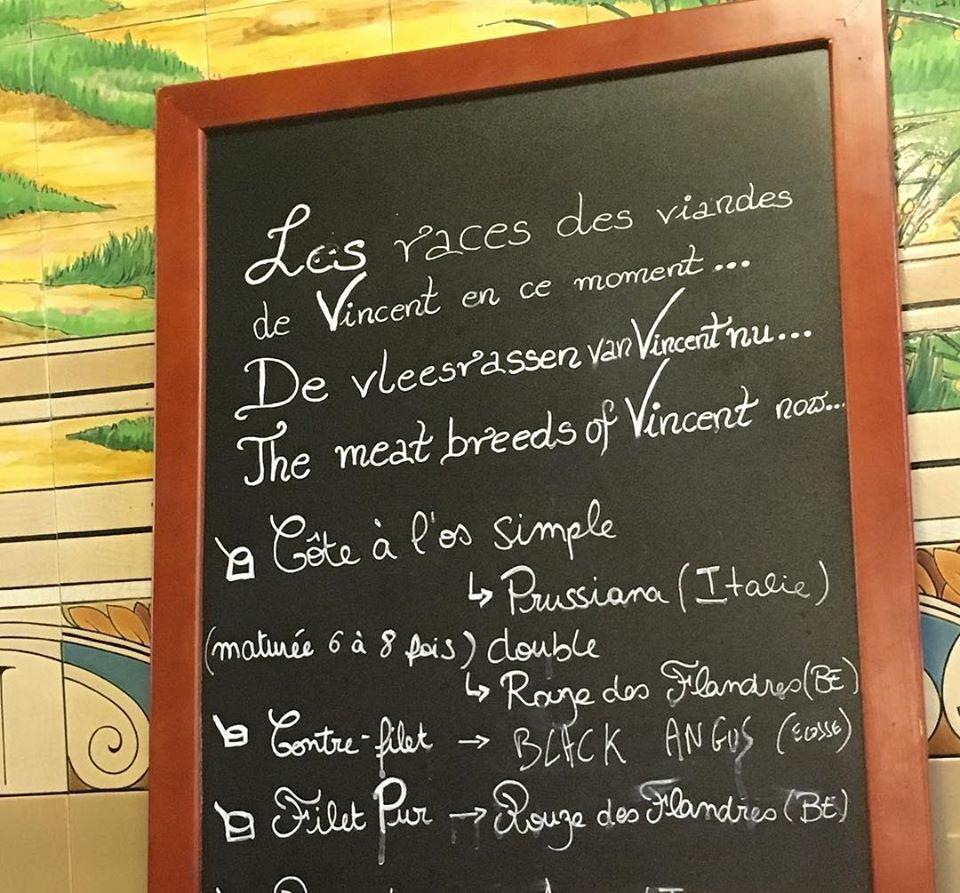 Les races des viandes
de Vincent en ce moment...
De vleesrassen van Vincent nu...
The meat breeds of Vincent now...
Côte à l'os simple
↳ Prussiana (Italie)
(maturée 6 à 8 fois) double
↳ Rouge des Flandres (BE)
Contre-filet → BLACK ANGUS (ECOSSE)
Filet Pur → Rouge des Flandres (BE)